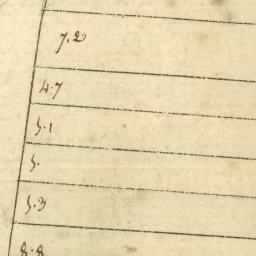 7.2
4.7
5.1
5.
5.3
8.8